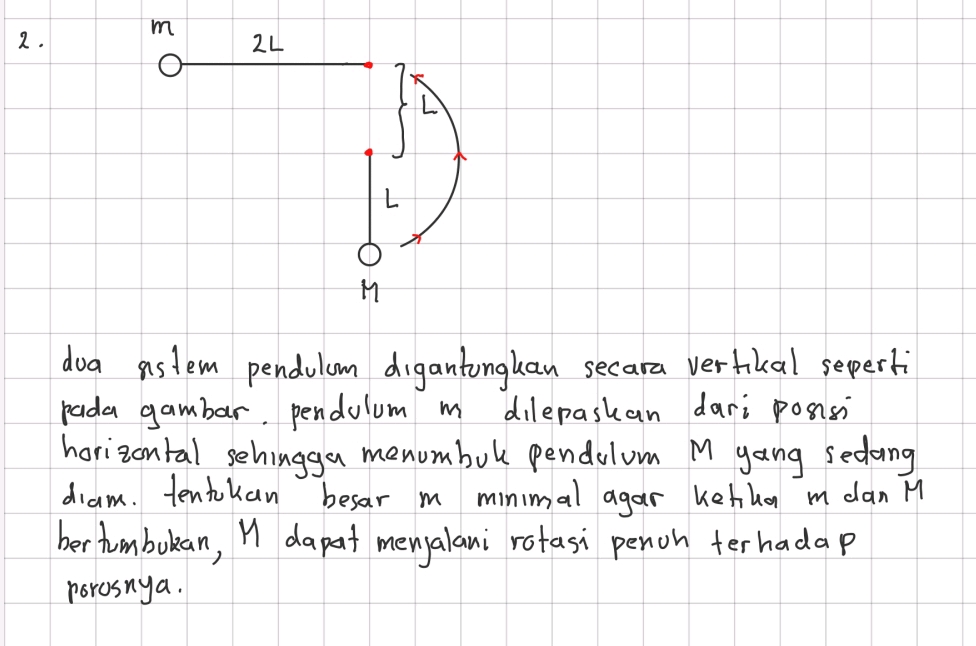 2.
m
2L
L
L
M
dua sistem pendulum digantungkan secara vertikal seperti
pada gambar. pendulum m dilepaskan dari posisi
horizontal sehingga menumbuk pendulum M yang sedang
diam. tentukan besar m minimal agar ketika m dan M
bertumbukan, M dapat menjalani rotasi penuh terhadap
porosnya.